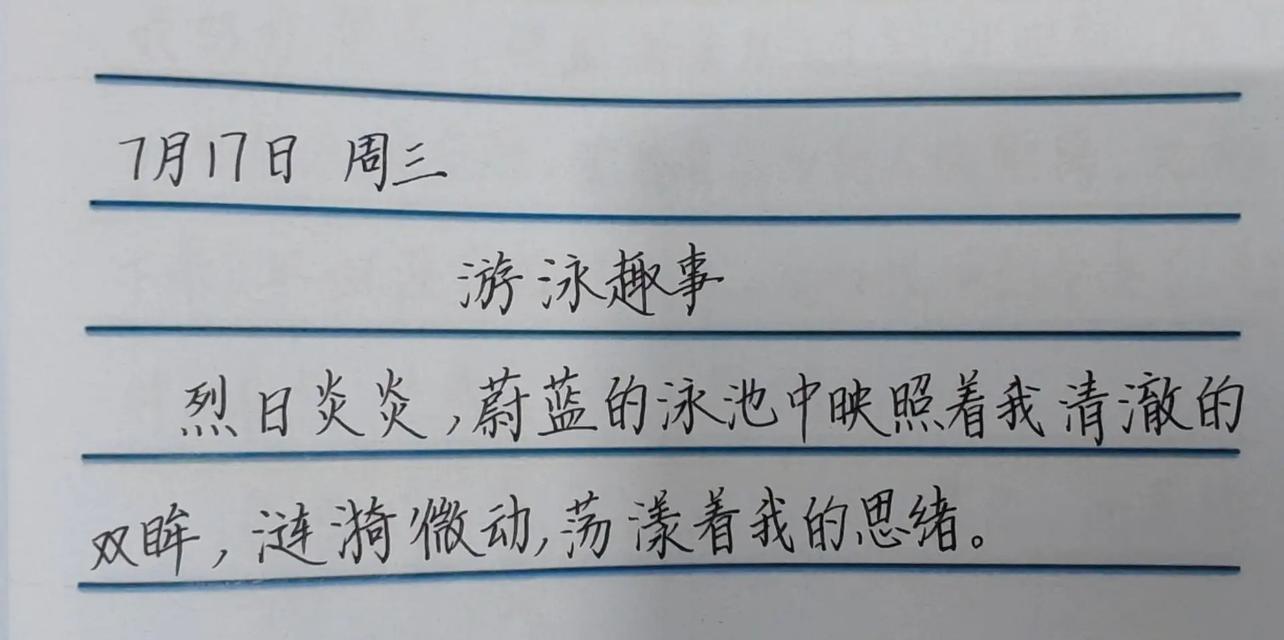 7月17日 周三
游泳趣事
烈日炎炎,蔚蓝的泳池中映照着我清澈的
双眸,涟漪微动,荡漾着我的思绪。